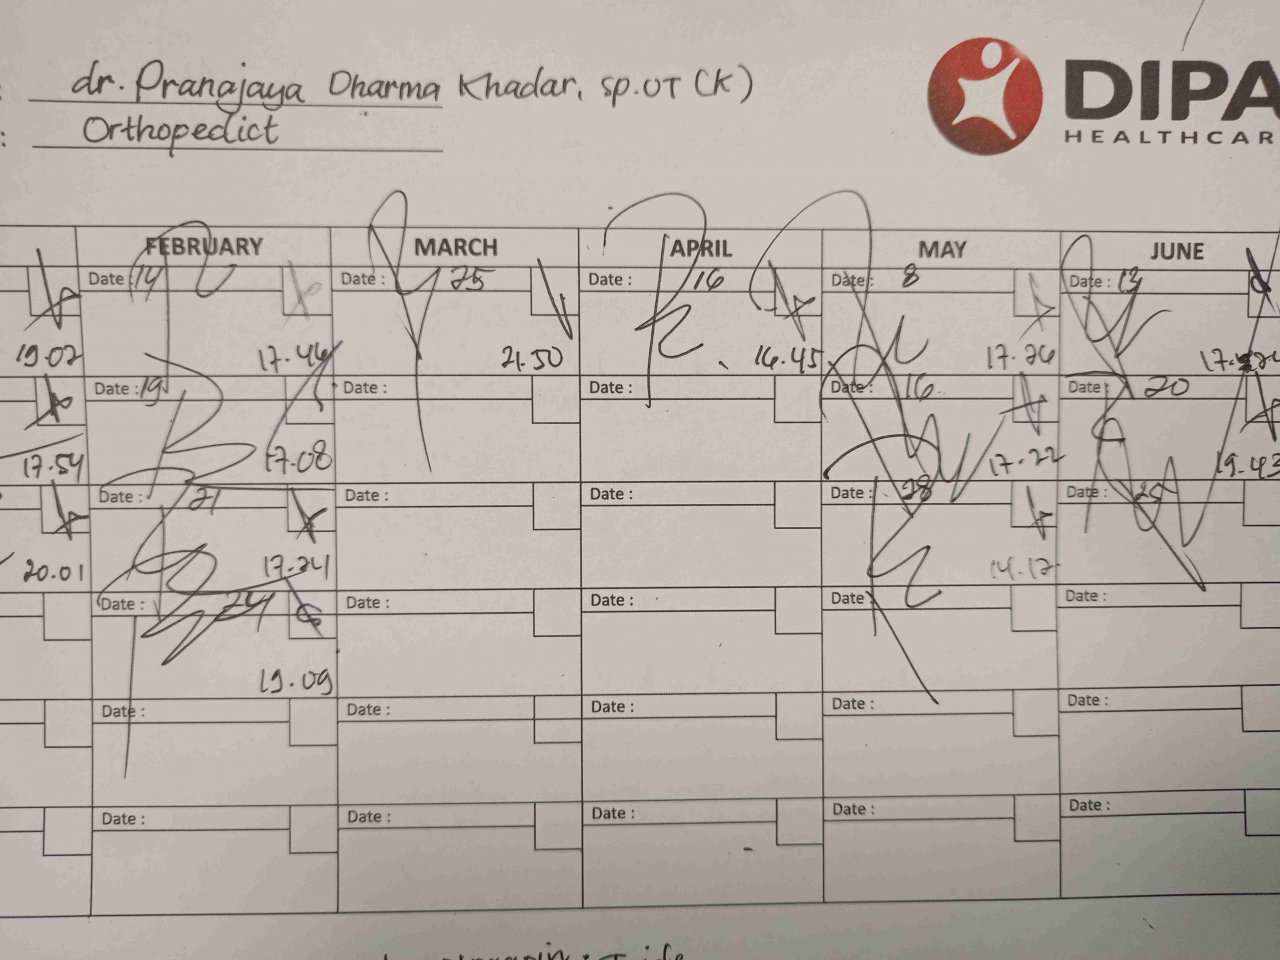 : dr. Pranajaya Dharma Khadar, Sp.OT (K)
: Orthopedict
DIPA
HEALTHCAR
FEBRUARY MARCH APRIL MAY JUNE
Date : 14 Date : 25 Date : 16 Date : 8 Date : 13
19.02 17.46 21.50 16.45 17.26
Date : 19 Date : Date : Date : 16 Date : 20
17.54 17.08 17.22 19.43
Date : 21 Date : Date : Date : 28 Date : 25
20.01 17.24 14.12
Date : 24 Date : Date : Date : Date :
19.09
Date : Date : Date : Date : Date :
Date : Date : Date : Date : Date :